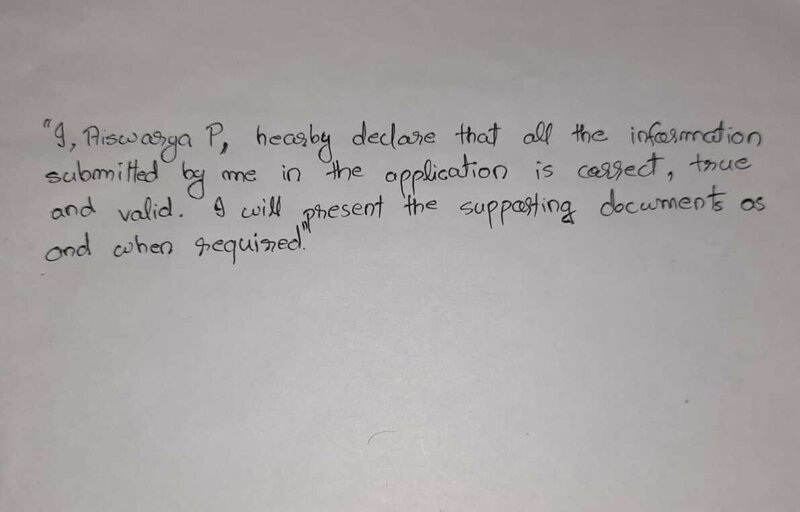 "I, Aiswarya P, hearby declare that all the information
submitted by me in the application is correct, true
and valid. I will present the supporting documents as
and when required."